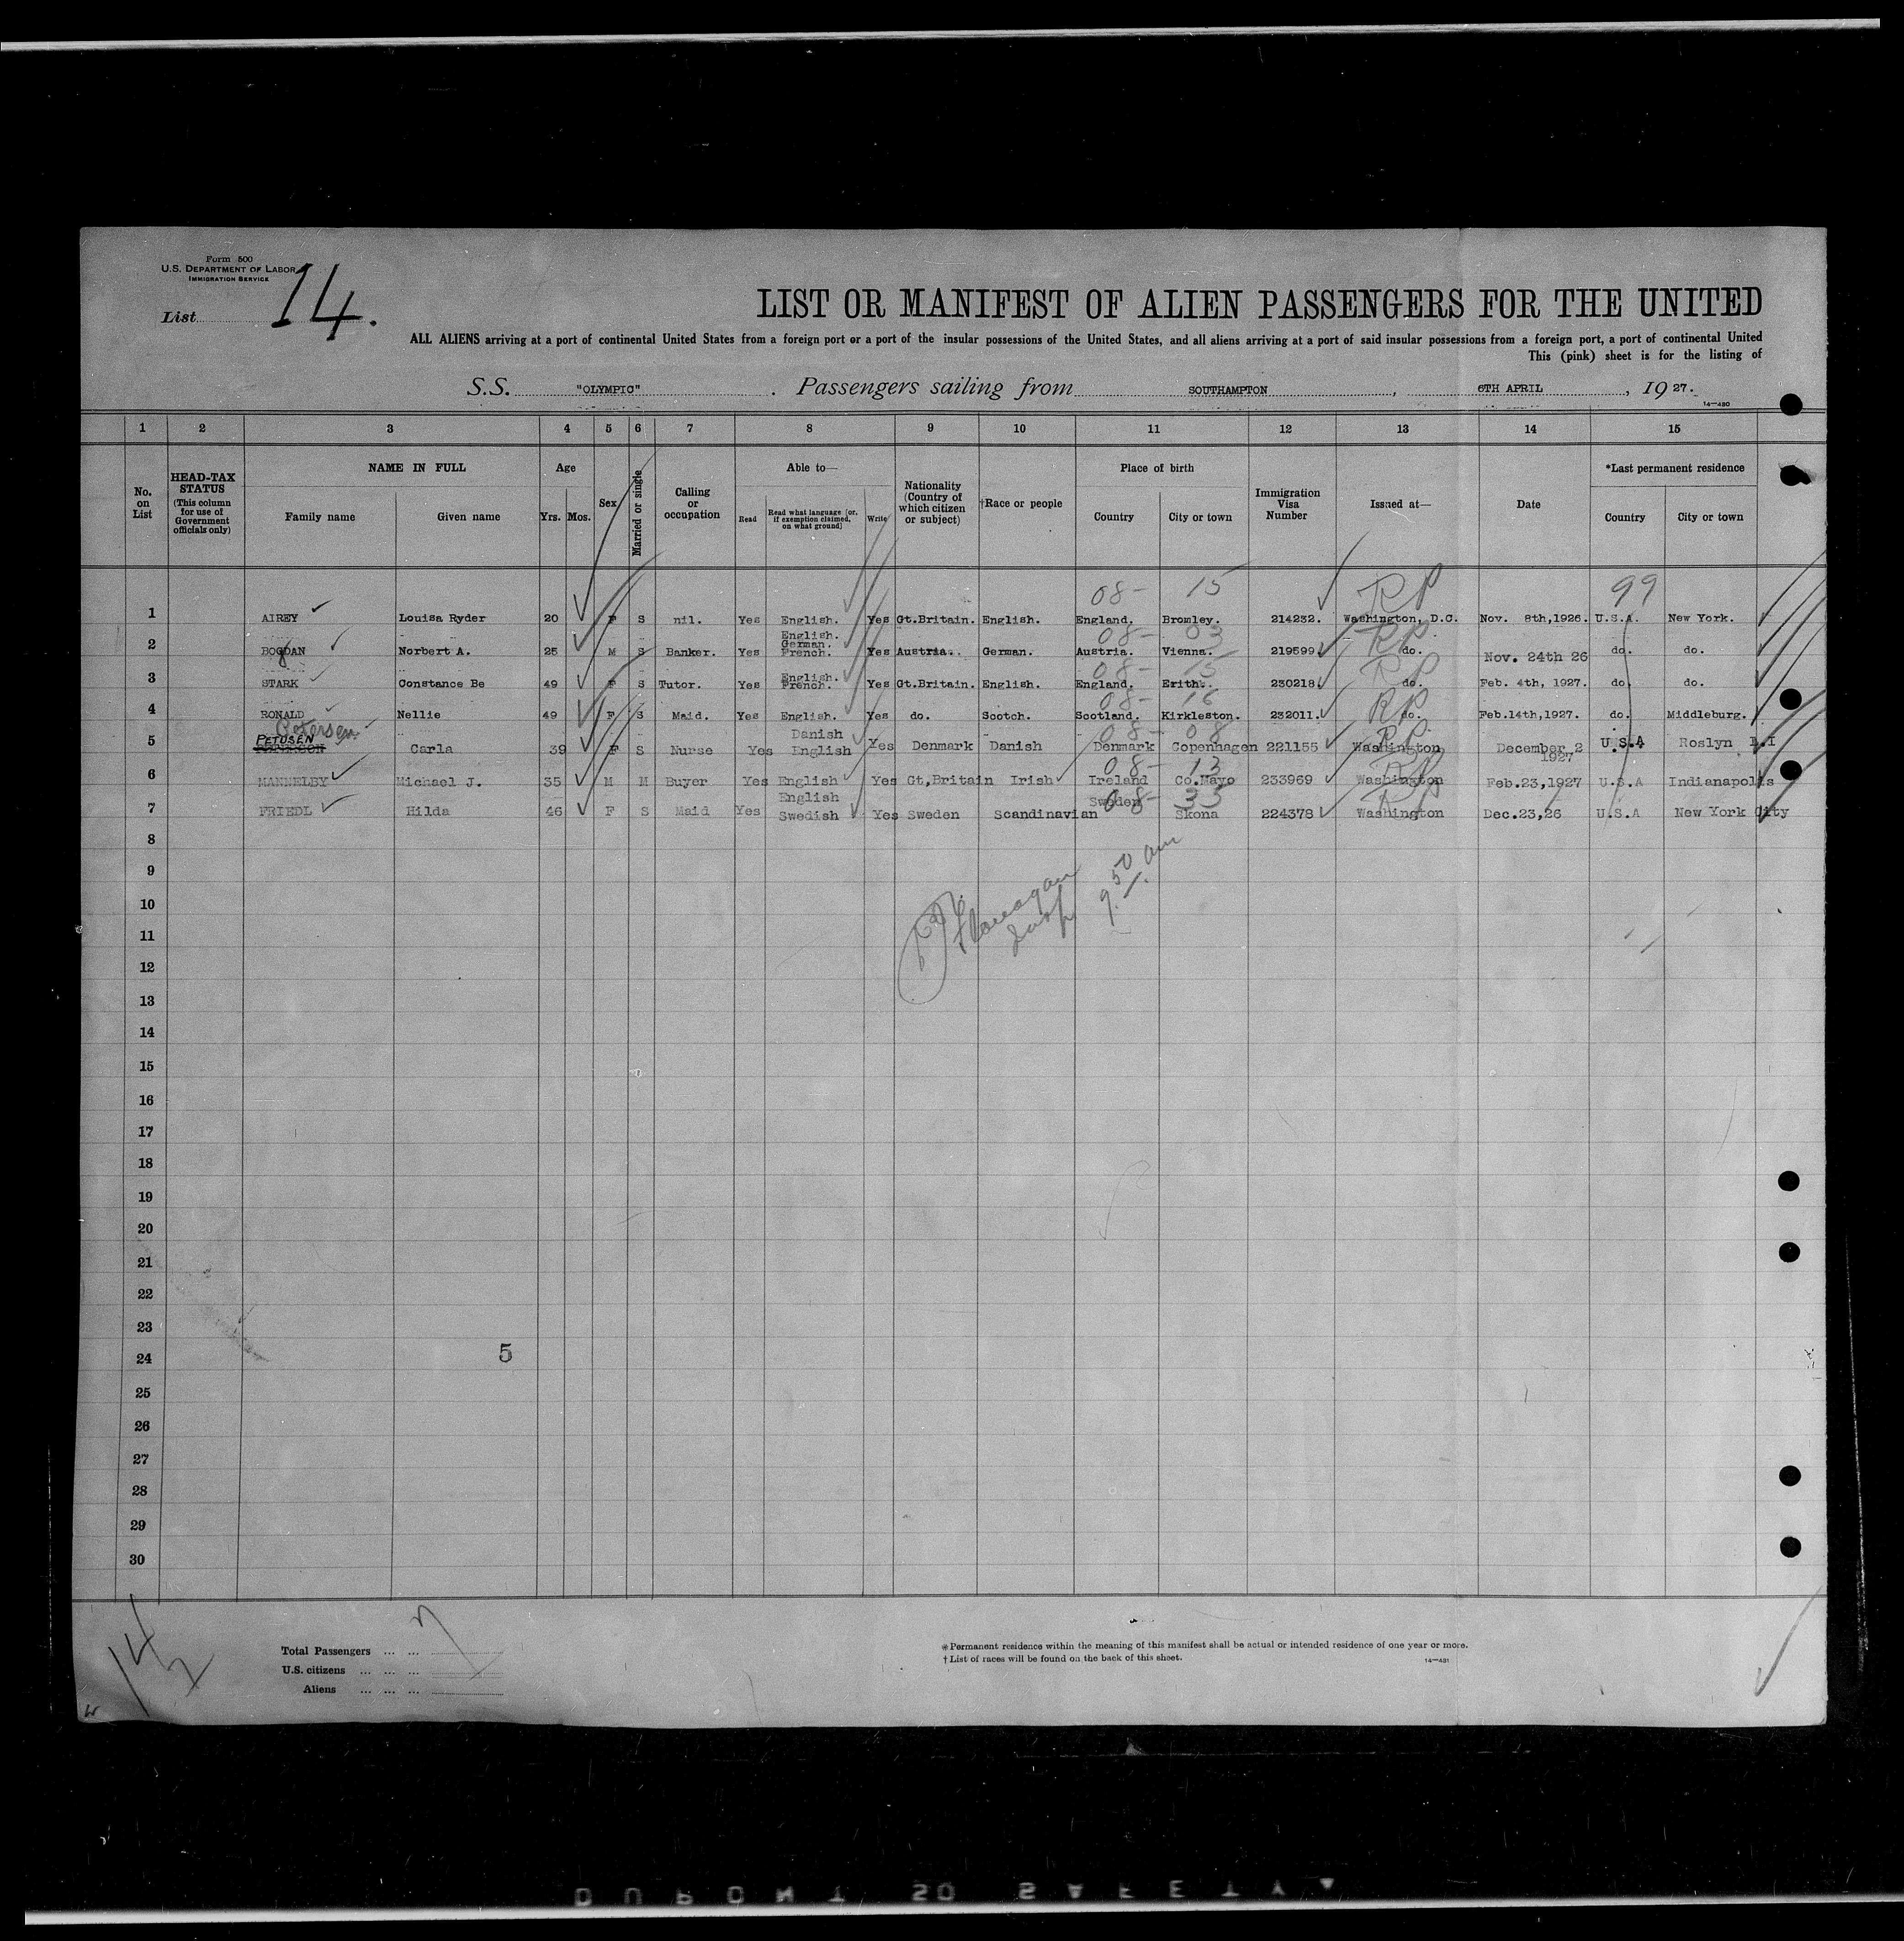 Form 500
U.S. DEPARTMENT OF LABOR
IMMIGRATION SERVICE
List 14.
LIST OR MANIFEST OF ALIEN PASSENGERS FOR THE UNITED
ALL ALIENS arriving at a port of continental United States from a foreign port or a port of the insular possessions of the United States, and all aliens arriving at a port of said insular possessions from a foreign port, a port of continental United
This (pink) sheet is for the listing of
S.S. "OLYMPIC" . Passengers sailing from SOUTHAMPTON , 6TH APRIL , 19 27.
14—430
1 2 3 4 5 6 7 8 9 10 11 12 13 14 15
No. on List
HEAD-TAX STATUS (This column for use of Government officials only)
NAME IN FULL
Family name Given name
Age
Yrs. Mos.
Sex
Married or single
Calling or occupation
Able to—
Read Read what language [or, if exemption claimed, on what ground] Write
Nationality (Country of which citizen or subject)
†Race or people
Place of birth
Country City or town
Immigration Visa Number
Issued at—
Date
*Last permanent residence
Country City or town
08- 15 RP 99
1 AIREY Louisa Ryder 20 F S nil. Yes English. Yes Gt.Britain. English. England. Bromley. 214232. Washington, D.C. Nov. 8th,1926. U.S.A. New York.
08- 03 RP
2 BOGDAN Norbert A. 25 M S Banker. Yes English. German. French. Yes Austria. German. Austria. Vienna. 219599 do. Nov. 24th 26 do. do.
08- 15 RP
3 STARK Constance Be 49 F S Tutor. Yes English. French. Yes Gt.Britain. English. England. Erith. 230218. do. Feb. 4th, 1927. do. do.
08- 16 RP
4 RONALD Nellie 49 F S Maid. Yes English. Yes do. Scotch. Scotland. Kirkleston. 232011. do. Feb.14th,1927. do. Middleburg.
Petersen
08- 08 RP
5 PETUSEN Carla 39 F S Nurse Yes Danish English Yes Denmark Danish Denmark Copenhagen 221155 Washington December 2 1927 U.S.A Roslyn L.I
08- 13 RP
6 MANNELBY Michael J. 35 M M Buyer Yes English Yes Gt,Britain Irish Ireland Co.Mayo 233969 Washington Feb.23,1927 U.S.A Indianapolis
08- 33 RP
7 FRIEDL Hilda 46 F S Maid Yes English Swedish Yes Sweden Scandinavian Sweden Skona 224378 Washington Dec.23,26 U.S.A New York City
8
9
9.50 am
10
11
12
13
14
15
16
17
18
19
20
21
22
23
24 5
25
26
27
28
29
30
14
2
Total Passengers ... ... 7
U.S. citizens ... ... ...
Aliens ... ... ...
*Permanent residence within the meaning of this manifest shall be actual or intended residence of one year or more.
†List of races will be found on the back of this sheet.
14—431
DUPONT 50 SAFETY